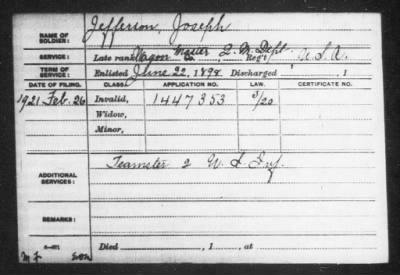 NAME OF SOLDIER: Jefferson, Joseph
SERVICE: Late rank Wagon Master Q. M. Dept. Co. Reg't U.S.A.
TERM OF SERVICE: Enlisted June 22, 1898 Discharged , 1
DATE OF FILING. CLASS. APPLICATION NO. LAW. CERTIFICATE NO.
1921 Feb. 26 Invalid, 1447353
Widow,
Minor,
ADDITIONAL SERVICES: Teamster 2 U. S. Inf.
REMARKS:
Died , 1 , at